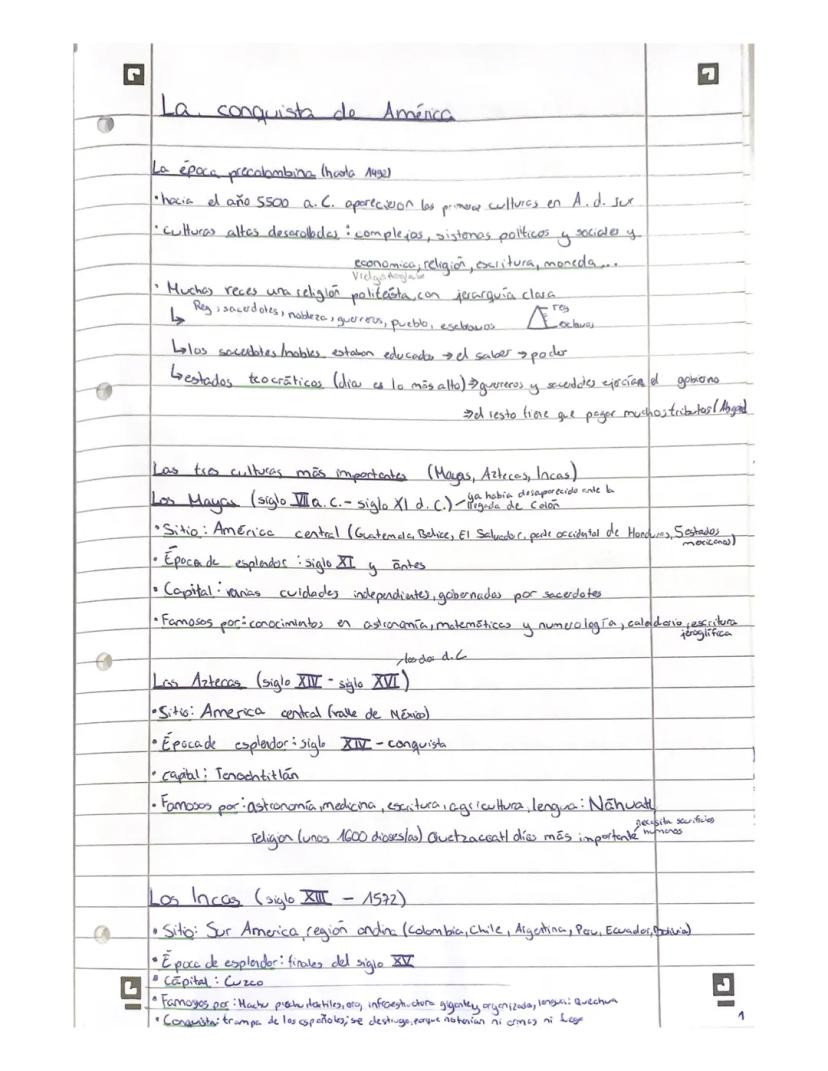 La conquista de América
La época precolombina (hasta 1492)
• hacia el año 5500 a.C. aparecieron las primeras culturas en A. d. Sur
• culturas altas desarolladas: complejas, sistemas políticos y sociales y
economica, religión, escritura, moneda...
• Muchas veces una religión politeísta, con jerarquía clara
↳ Rey, sacerdotes, nobleza, guerreros, pueblo, esclavos
rey
esclavos
↳ los sacerdotes/nobles estaban educados → el saber → poder
↳ estados teocráticos (dios es lo más alto) → guerreros y sacerdotes ejercían el gobierno
⇒ el resto tiene que pagar muchos tributos
Las tres culturas más importantes (Mayas, Aztecas, Incas)
Los Mayas (siglo VII a.C. - siglo XI d.C.) - ya había desaparecido ante la
llegada de Colón
• Sitio: América central (Guatemala, Belice, El Salvador, parte occidental de Honduras, 5 estados
mexicanos)
• Época de esplendor: siglo XI y antes
• Capital: varias cuidades independientes, gobernadas por sacerdotes
• Famosos por: conocimientos en astronomía, matemáticas y numerología, calendario, escritura
jeroglífica
d.C
Los Aztecas (siglo XIV - siglo XVI)
• Sitio: America central (valle de México)
• Época de esplendor: siglo XIV - conquista
• capital: Tenochtitlán
• Famosos por: astronomía, medicina, escritura, agricultura, lengua: Náhuatl
religion (unos 1600 dioses/as) Quetzacoatl dios más importante
necesita sacrificios
humanos
Los Incas (siglo XIII - 1572)
• Sitio: Sur America, región andina (Colombia, Chile, Argentina, Peru, Ecuador, Bolivia)
• Época de esplendor: finales del siglo XV
• Capital: Cuzco
• Famosos por: Machu pichu, textiles, oro, infraestructura gigante y organizada, lengua: Quechua
• Conquista: trampa de los españoles, se destruyo, porque no tenian ni armas ni
1